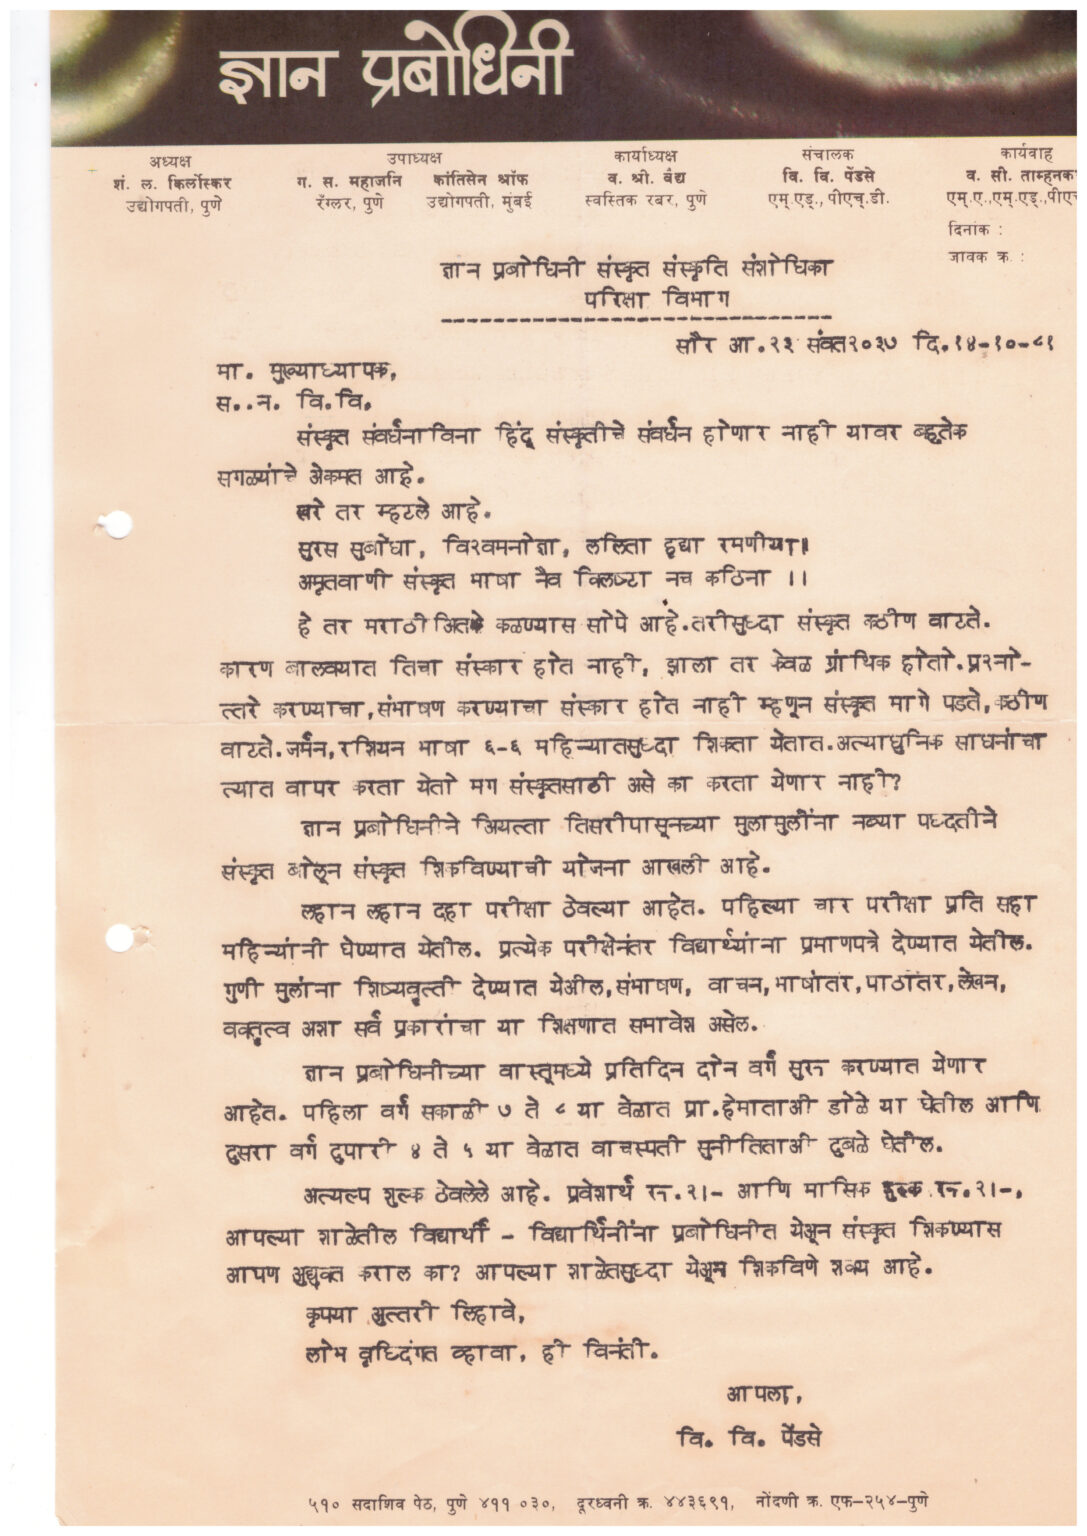 ज्ञान प्रबोधिनी
अध्यक्ष उपाध्यक्ष कार्याध्यक्ष संचालक कार्यवाह
शं. ल. किर्लोस्कर ग. स. महाजनि कांतिसेन श्रॉफ व. श्री. वैद्य वि. वि. पेंडसे व. सी. ताम्हनक
उद्योगपती, पुणे रँग्लर, पुणे उद्योगपती, मुंबई स्वस्तिक रबर, पुणे एम्.एड्., पीएच्.डी. एम्.ए.,एम्.एड्.,पीएच
दिनांक :
जावक क्र. :
ज्ञान प्रबोधिनी संस्कृत संस्कृति संशोधिका
परिक्षा विभाग
सौर आ.२३ संवत२०३७ दि.१४-१०-८१
मा. मुख्याध्यापक,
स..न. वि.वि.
संस्कृत संवर्धनाविना हिंदू संस्कृतीचे संवर्धन होणार नाही यावर बहुतेक
सगळ्यांचे अेकमत आहे.
खरे तर म्हटले आहे.
सुरस सुबोधा, विश्वमनोज्ञा, ललिता हृद्या रमणीया।
अमृतवाणी संस्कृत भाषा नैव क्लिष्टा नच कठिना ।।
हे तर मराठीअितके कळण्यास सोपे आहे.तरीसुध्दा संस्कृत कठीण वाटते.
कारण बालवयात तिचा संस्कार होत नाही, झाला तर केवळ ग्रांथिक होतो.प्रश्नो-
त्तरे करण्याचा,संभाषण करण्याचा संस्कार होत नाही म्हणून संस्कृत मागे पडते,कठीण
वाटते.जर्मन,रशियन भाषा ६-६ महिन्यातसुध्दा शिकता येतात.अत्याधुनिक साधनांचा
त्यात वापर करता येतो मग संस्कृतसाठी असे का करता येणार नाही?
ज्ञान प्रबोधिनीने अियत्ता तिसरीपासूनच्या मुलामुलींना नव्या पध्दतीने
संस्कृत बोलून संस्कृत शिकविण्याची योजना आखली आहे.
लहान लहान दहा परीक्षा ठेवल्या आहेत. पहिल्या चार परीक्षा प्रति सहा
महिन्यांनी घेण्यात येतील. प्रत्येक परीक्षेनंतर विद्यार्थ्यांना प्रमाणपत्रे देण्यात येतील.
गुणी मुलांना शिष्यवृत्ती देण्यात येअील,संभाषण, वाचन,भाषांतर,पाठांतर,लेखन,
वक्तृत्व अशा सर्व प्रकारांचा या शिक्षणात समावेश असेल.
ज्ञान प्रबोधिनीच्या वास्तूमध्ये प्रतिदिन दोन वर्ग सुरू करण्यात येणार
आहेत. पहिला वर्ग सकाळी ७ ते ८ या वेळात प्रा.हेमाताअी डोळे या घेतील आणि
दुसरा वर्ग दुपारी ४ ते ५ या वेळात वाचस्पती सुनीतिताअी दुबळे घेतील.
अत्यल्प शुल्क ठेवलेले आहे. प्रवेशार्थ रू.२।- आणि मासिक शुल्क रू.२।-.
आपल्या शाळेतील विद्यार्थी - विद्यार्थिनींना प्रबोधिनीत येअून संस्कृत शिकण्यास
आपण अुद्युक्त कराल का? आपल्या शाळेतसुध्दा येअून शिकविणे शक्य आहे.
कृपया अुत्तरी लिहावे,
लोभ वृध्दिंगत व्हावा, ही विनंती.
आपला,
वि. वि. पेंडसे
५१० सदाशिव पेठ, पुणे ४११ ०३०, दूरध्वनी क्र. ४४३६९१, नोंदणी क्र. एफ-२५४-पुणे